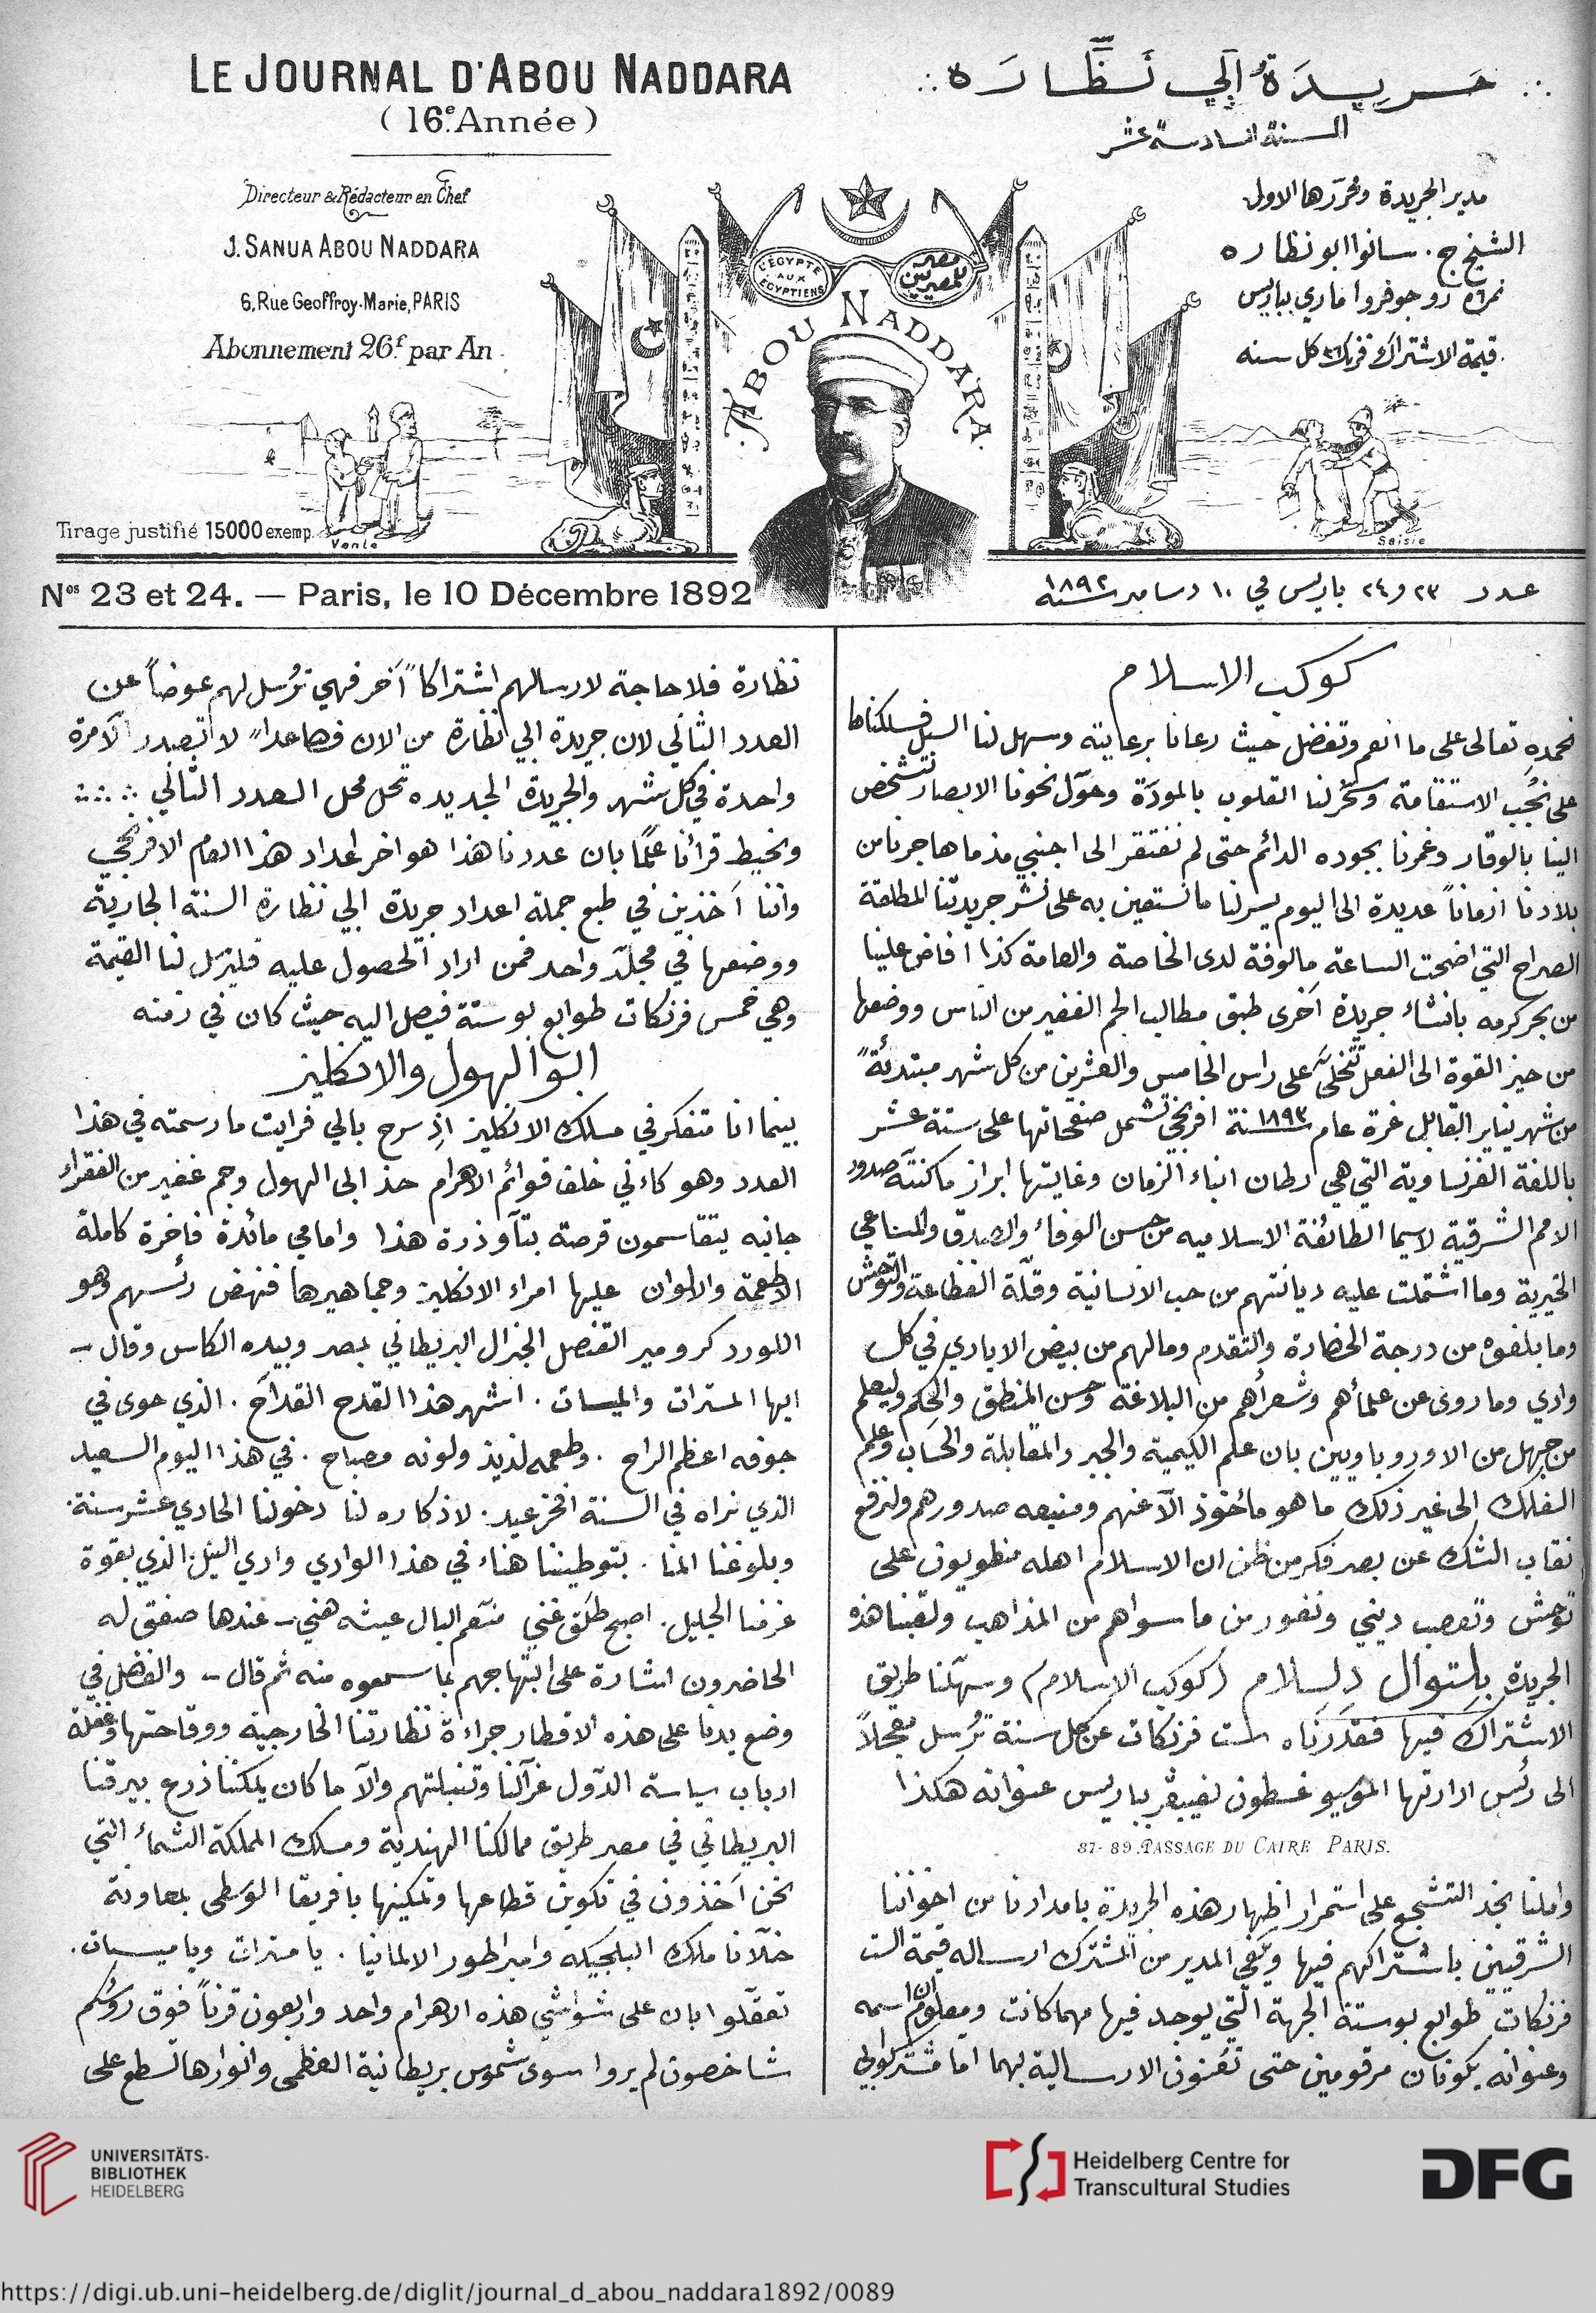 LE JOURNAL D'ABOU NADDARA
(16e Année)
Directeur & Rédacteur en Chef
J. SANUA ABOU NADDARA
6, Rue Geoffroy-Marie, PARIS
Abonnement 26f par An
Tirage justifié 15000 exemp.
Vente
جَريدَةُ أبي نَظَّارَه
السنة السادسة عشر
مدير الجريدة ومحرّرها الاول
الشيخ ج. سانوا ابو نظاره
نمرة ٦ رو جوفروا ماري بباريس
قيمة الاشتراك فرنك ٢٦ كل سنه
Saisie
L'ÉGYPTE AUX ÉGYPTIENS
مصر للمصريين
ABOU NADDARA
Nos 23 et 24. — Paris, le 10 Décembre 1892
عدد ٢٣ و ٢٤ باريس في ١٠ دسامبر سنة ١٨٩٢
كوكب الاسلام
نحمده تعالى على ما انعم وتفضل حيث رعانا برعايته وسهل لنا السبل فسلكناها
على نجُب الاستقامة وسخّر لنا القلوب بالمودّة وحوّل نحونا الابصار تشخص
الينا بالوقار وغمرنا بجوده الدائم حتى لم نفتقر الى اجنبي مذ ما هاجرنا من
بلادنا ازماناً عديدة الى اليوم يسر لنا ما نستعين به على نشر جريدتنا المطلقة
الصراح التي اضحت الساعة مالوفة لدى الخاصة والعامة كذا افاض علينا
من بحر كرمه بانشاء جريدة اخرى طبق مطالب الجم الغفير من الناس ووضعها
من حيز القوة الى الفعل تتجلى على راس الخامس والعشرين من كل شهر مبتدئةً
من شهر يناير القابل غرة عام ١٨٩٣ سنة افرنجي تشمل صفحاتها على ستة عشر
باللغة الفرنساوية التي هي ارطان ابناء الزمان وغايتها ابراز ما كنته صدور
الامم الشرقية لاسيما الطائفة الاسلاميه من حسن الوفاء والصدق والمساعي
الخيرية وما اشتملت عليه ديانتهم من حب الانسانية وقلّة الفظاعة والتوحش
وما بلغوه من درجة الحضارة والتقدم وما لهم من بيض الايادي في كل
وادي وما روى عن علمائهم وشعرائهم من البلاغة وحسن المنطق والحكم وليعلم
من جهل من الاوروباويين بان علم الكيمية والجبر والمقابلة والحساب وعلم
الفلك الى غير ذلك ما هو مأخوذ الاّ عنهم ومنبعه صدورهم ولنرفع
نقاب الشك عن بصر فكر من ظن ان الاسلام اهله منطويون على
توحش وتعصب ديني ونفور من ما سواهم من المذاهب ولقبنا هذه
الجريدة بلستوال دلسلام (كوكب الاسلام) وسهّلنا طريق
الاشتراك فيها فقدرناه ست فرنكات عن كل سنة تُرسل معجلاً
الى رئيس ادارتها الموسيو غسطون لفييفر بباريس عنوانه هكذا
87-89. PASSAGE DU CAIRE PARIS.
واملنا نجد التشجع على استمرار اظهار هذه الجريدة بامدادنا من اخواننا
الشرقيين باشتراكهم فيها ويكفي المدير من المشترك ارساله قيمة الست
فرنكات طوابع بوستة الجهة التي يوجد فيها مهما كانت ومعلوم ان اسمه
وعنوانه يكونان مرقومين حتى تقنون الارسالية لهما اما مشتركوا ابي
نظارة فلا حاجة لارسالهم اشتراكاً آخر فهي تُرسل لهم عوضاً عن
العدد الثاني لان جريدة ابي نظارة من الان فصاعداً لا تصدر الا مرة
واحدة في كل شهر والجريدة الجديده تحل محل العدد الثاني
ونحيط قرائنا علماً بان عددنا هذا هو اخر اعداد هذا العام الافرنجي
واننا آخذين في طبع جملة اعداد جريدة ابي نظارة السنة الجارية
ووضعها في مجلّد واحد فمن اراد الحصول عليه فليرسل لنا القيمة
وهي خمس فرنكات طوابع بوستة فيصل اليه حيث كان في زمنه
ابو الهول والانكليز
بينما انا متفكر في مسلك الانكليز اذ سرح بالي فرايت ما رسمته في هذا
العدد وهو كاءني خلف قوائم الاهرام حذا ابي الهول وجم غفير من الفقراء
جانبه يتقاسمون قرصة بتآوذرة هذا وامامي مائدة فاخرة كاملة
الاطعمة والالوان عليها امراء الانكليز وجماهيرها فنهض رئسهم وهو
اللورد كرومير القنصل الجنرال البريطاني بمصر وبيده الكاس وقال –
ايها المسترات والميسات. اشهر هذا القدح القداح. الذي حوى في
جوفه اعظم الراح. وطعمه لذيذ ولونه مصباح. في هذا اليوم السعيد
الذي نراه في السنة افخر عيد. لاذكاره لنا دخولنا الحادي عشر سنة.
وبلوغنا المنا. بتوطيننا هناء في هذا الوادي وادي النيل. الذي بقوة
غزمنا الجليل. اصبح طلق غني منعم البال عيشه هني – عندها صفق له
الحاضرون اشارة على ابتهاجهم بما سمعوه منه ثم قال – والفضل في
وضع يدنا على هذه الاقطار جراءة نظارتنا الخارجية ووقاحتها وغفلة
ارباب سياسة الدول غزالنا وتنبلتهم والاّ ما كان يمكننا زرع بيرقنا
البريطاني في مصر طريق ممالكنا الهندية ومسلك المملكة الشماء التي
نحن آخذون في تكوين قطاعها وتمكينها بافريقا الوسطى بمعاونة
خلاّنا ملك البلجيكه وامبراطور الالمانيا. يا مسترات ويا ميسات.
تعقّلوا بان على شواشي هذه الاهرام واحد واربعون قرناً فوق روئسكم
شاخصون لم يروا سوى شموس بريطانية العظمى وانوارها تسطع على
UNIVERSITÄTS-
BIBLIOTHEK
HEIDELBERG
Heidelberg Centre for
Transcultural Studies
DFG
https://digi.ub.uni-heidelberg.de/diglit/journal_d_abou_naddara1892/0089